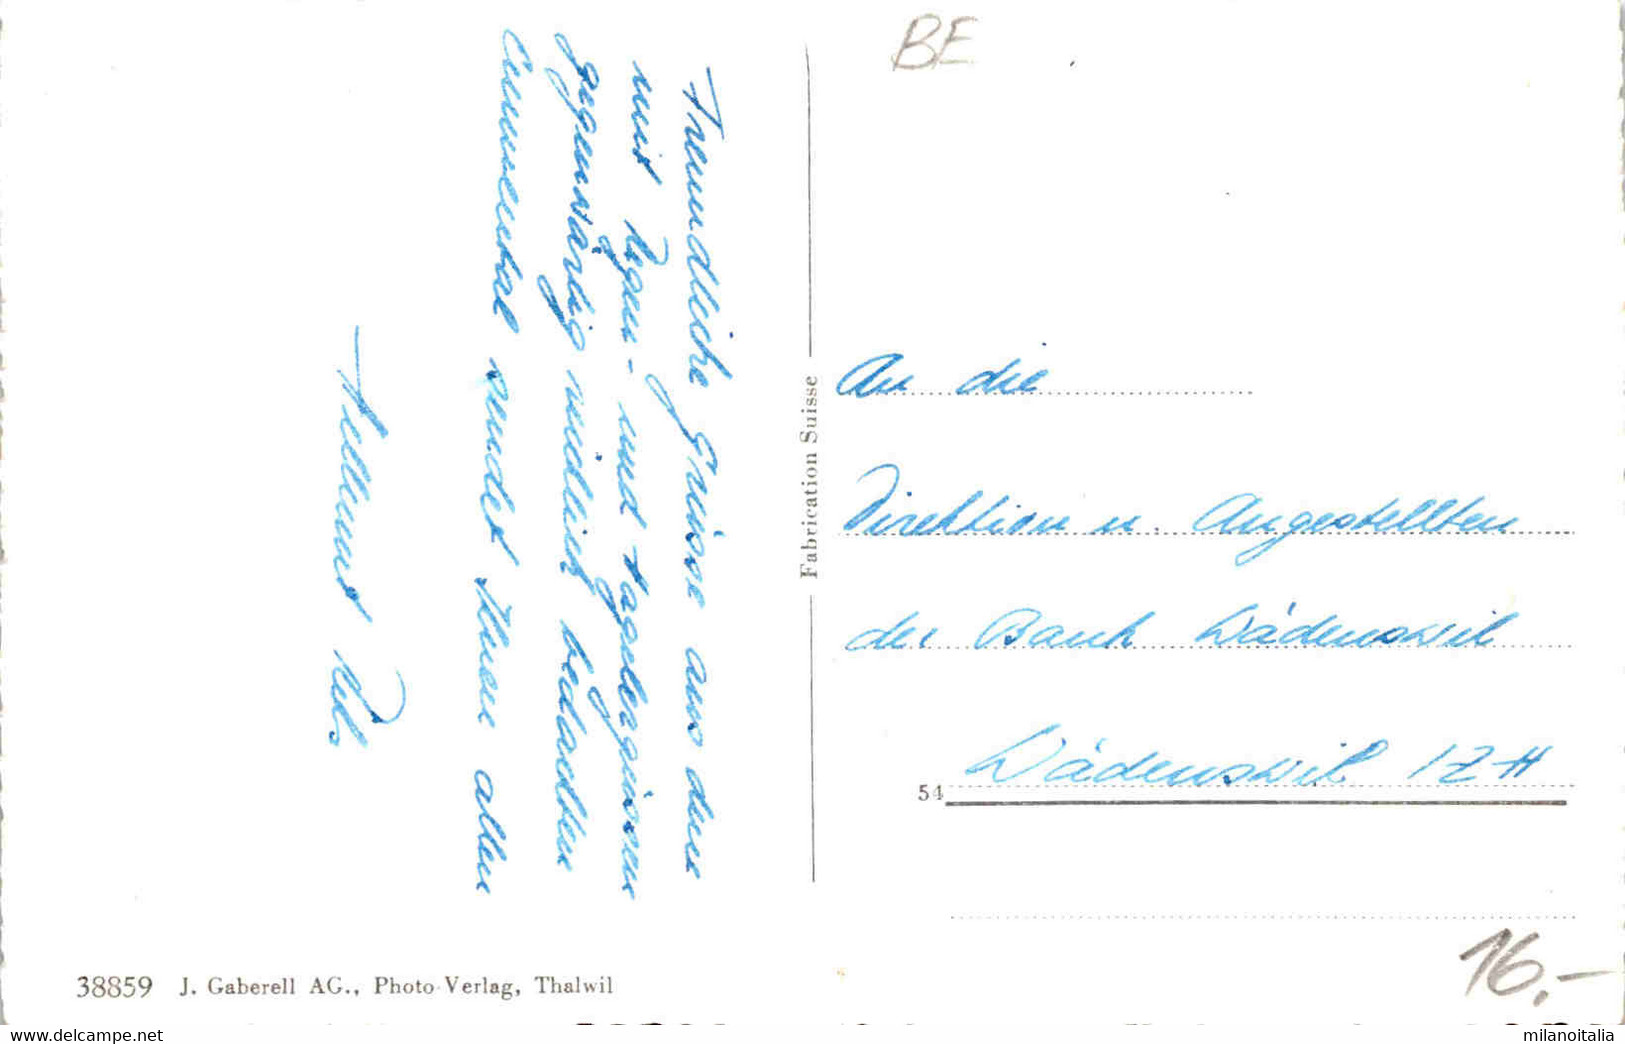 BE
Freundliche Grüsse aus dem
mit Regen- und Hagelergüssen
gegenwärtig reichlich bedachten
Emmental sendet Ihnen allen
Hellmut
Fabrication Suisse
An die
Direktion u. Angestellten
der Bank Wädenswil
Wädenswil /ZH
54
16.-
38859 J. Gaberell AG., Photo-Verlag, Thalwil
www.delcampe.net
milanoitalia